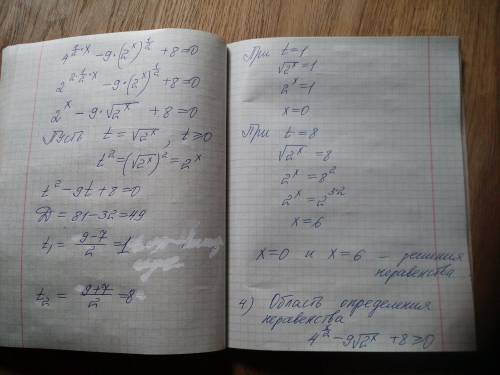 4^{\frac{1}{2}·x} − 9·(2^x)^{\frac{1}{2}} + 8 = 0
2^{2·\frac{1}{2}·x} − 9·(2^x)^{\frac{1}{2}} + 8 = 0
2^x − 9·√2^x + 8 = 0
Пусть t = √2^x, t ≥ 0
t² = (√2^x)² = 2^x
t² − 9t + 8 = 0
D = 81 − 32 = 49
t₁ = \frac{9−7}{2} = 1
t₂ = \frac{9+7}{2} = 8
При t = 1
√2^x = 1
2^x = 1
x = 0
При t = 8
√2^x = 8
2^x = 8²
2^x = 2^{3·2}
x = 6
x = 0 и x = 6 – решения
неравенства
4) Область определения
неравенства
4^{\frac{x}{2}} − 9√2^x + 8 ≥ 0